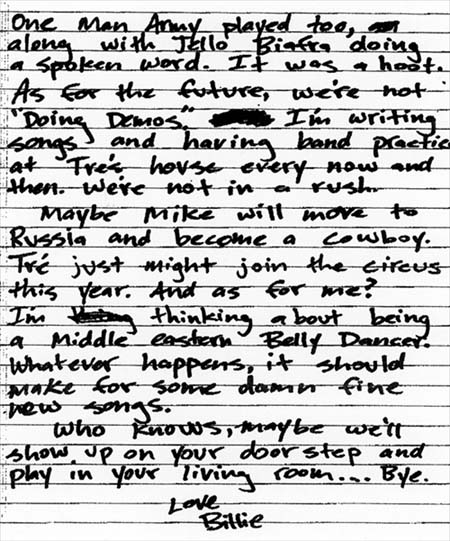 One Man Army played too,
along with Jello Biafra doing
a spoken word. It was a hoot.
As for the future, we're not
"Doing Demos." I'm writing
songs and having band practice
at Tré's house every now and
then. We're not in a rush.
Maybe Mike will move to
Russia and become a cowboy.
Tré just might join the circus
this year. And as for me?
I'm thinking about being
a Middle eastern Belly Dancer.
Whatever happens, it should
make for some damn fine
new songs.
Who knows, maybe we'll
show up on your door step and
play in your living room... Bye.
Love
Billie